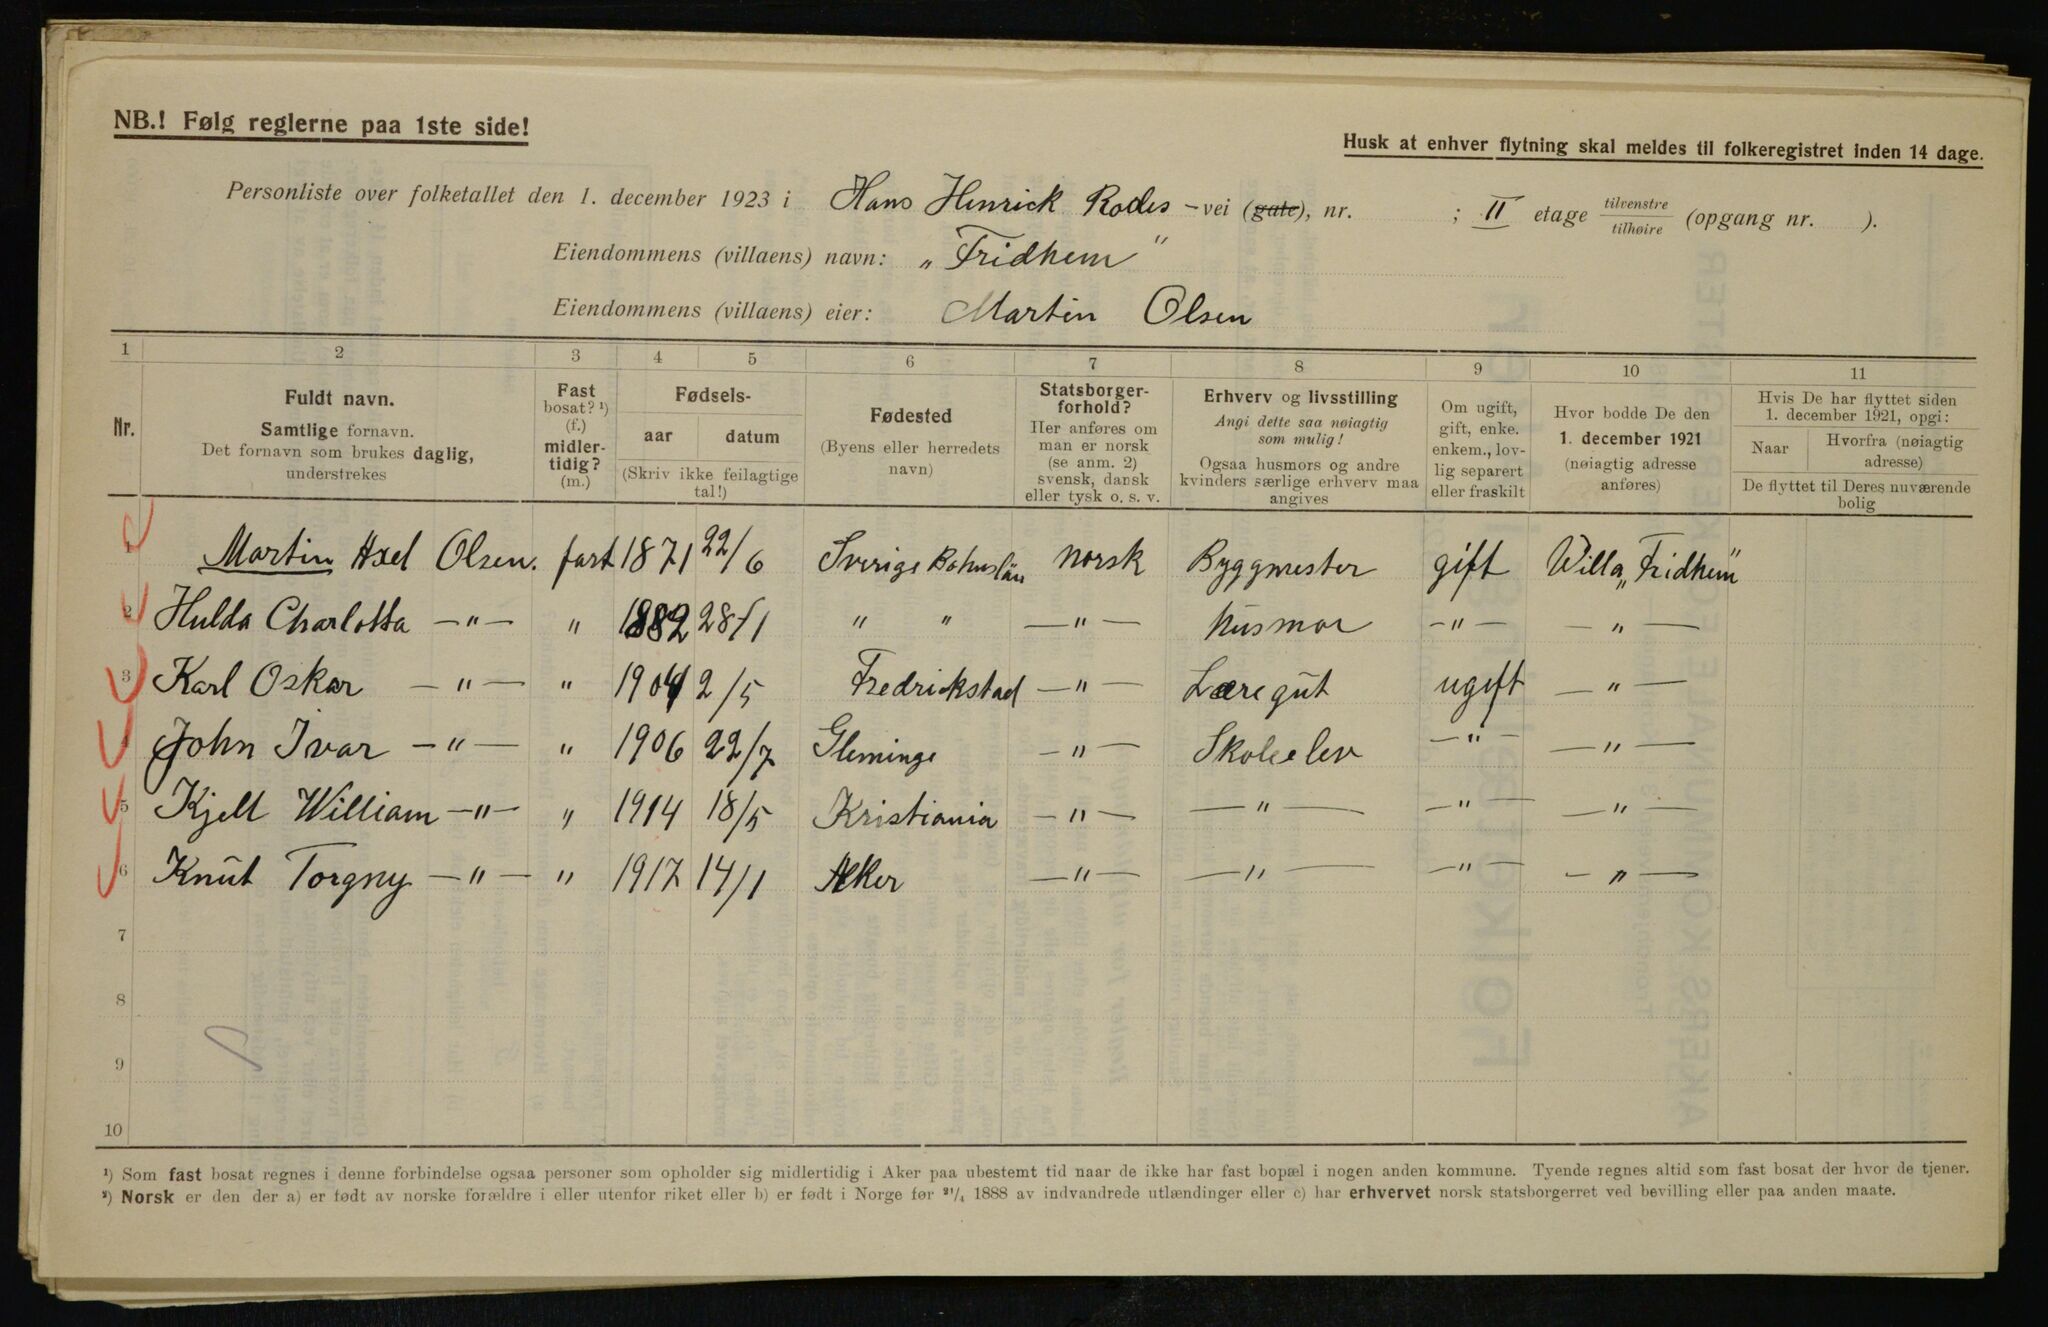 NB.! Følg reglerne paa 1ste side!
Husk at enhver flytning skal meldes til folkeregistret inden 14 dage.
Personliste over folketallet den 1. december 1923 i Hans Henrick Rodes -vei (gate), nr. ; II etage tilvenstre/tilhøire (opgang nr. ).
Eiendommens (villaens) navn: „Fridhem"
Eiendommens (villaens) eier: Martin Olsen
1 2 3 4 5 6 7 8 9 10 11
Nr.
Fuldt navn.
Samtlige fornavn.
Det fornavn som brukes daglig,
understrekes
Fast
bosat? ¹)
(f.)
midler-
tidig?
(m.)
Fødsels-
aar datum
(Skriv ikke feilagtige
tal!)
Fødested
(Byens eller herredets
navn)
Statsborger-
forhold?
Her anføres om
man er norsk
(se anm. 2)
svensk, dansk
eller tysk o. s. v.
Erhverv og livsstilling
Angi dette saa nøiagtig
som mulig!
Ogsaa husmors og andre
kvinders særlige erhverv maa
angives
Om ugift,
gift, enke.
enkem., lov-
lig separert
eller fraskilt
Hvor bodde De den
1. december 1921
(nøiagtig adresse
anføres)
Hvis De har flyttet siden
1. december 1921, opgi:
Naar
Hvorfra (nøiagtig
adresse)
De flyttet til Deres nuværende
bolig
1 Martin Axel Olsen. fast 1871 22/6 Sverige Bohuslän norsk Byggmester gift Willa „Fridhem"
2 Hulda Charlotta —"— " 1882 28/1 " " —"— Husmor —"— —"—
3 Karl Oskar —"— " 1904 2/5 Fredrikstad —"— Læregut ugift —"—
4 John Ivar —"— " 1906 22/7 Gleminge —"— Skoleelev —"— —"—
5 Kjell William —"— " 1914 18/5 Kristiania —"— —"— —"— —"—
6 Knut Torgny —"— " 1917 14/1 Aker —"— —"— —"— —"—
7
8
9
10
¹) Som fast bosat regnes i denne forbindelse ogsaa personer som opholder sig midlertidig i Aker paa ubestemt tid naar de ikke har fast bopæl i nogen anden kommune. Tyende regnes altid som fast bosat der hvor de tjener.
²) Norsk er den der a) er født av norske forældre i eller utenfor riket eller b) er født i Norge før ²¹/₄ 1888 av indvandrede utlændinger eller c) har erhvervet norsk statsborgerret ved bevilling eller paa anden maate.